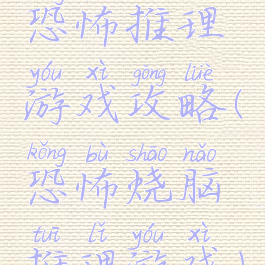 恐怖推理
yóu xì gōng lüè
游戏攻略(
kǒng bù shāo nǎo
恐怖烧脑
tuī lǐ yóu xì
推理游戏)